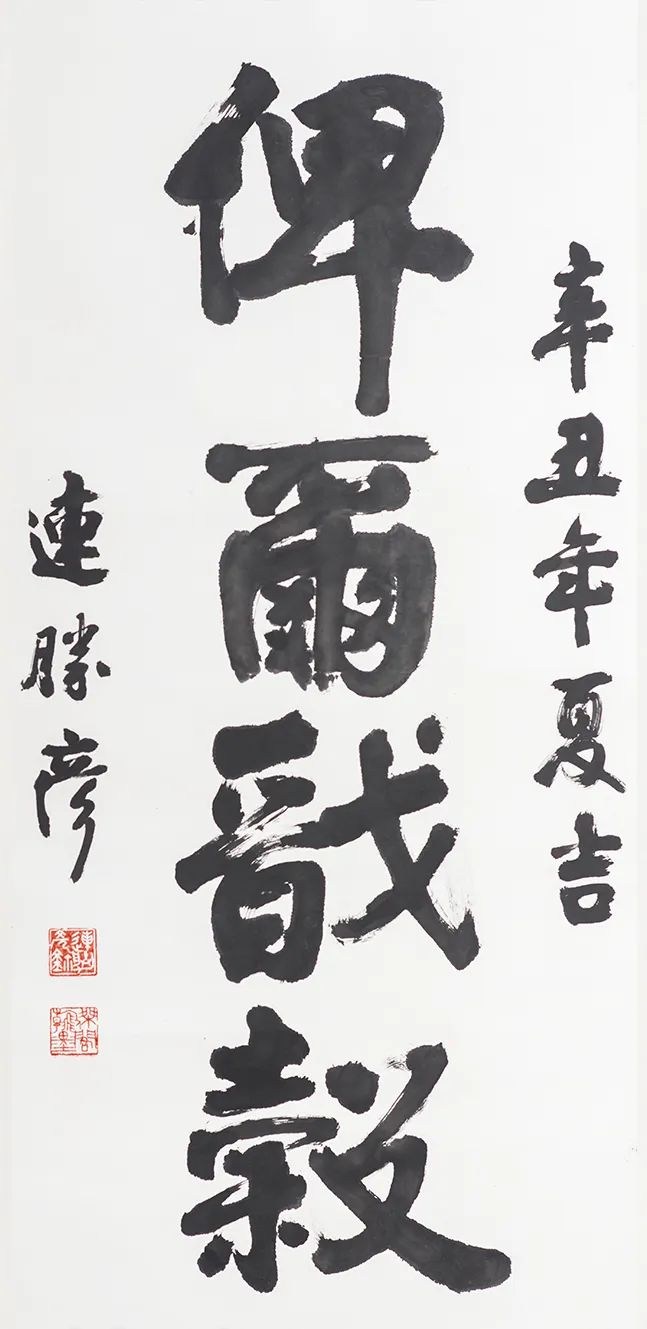 辛丑年夏吉
俾爾戩穀
連勝彥